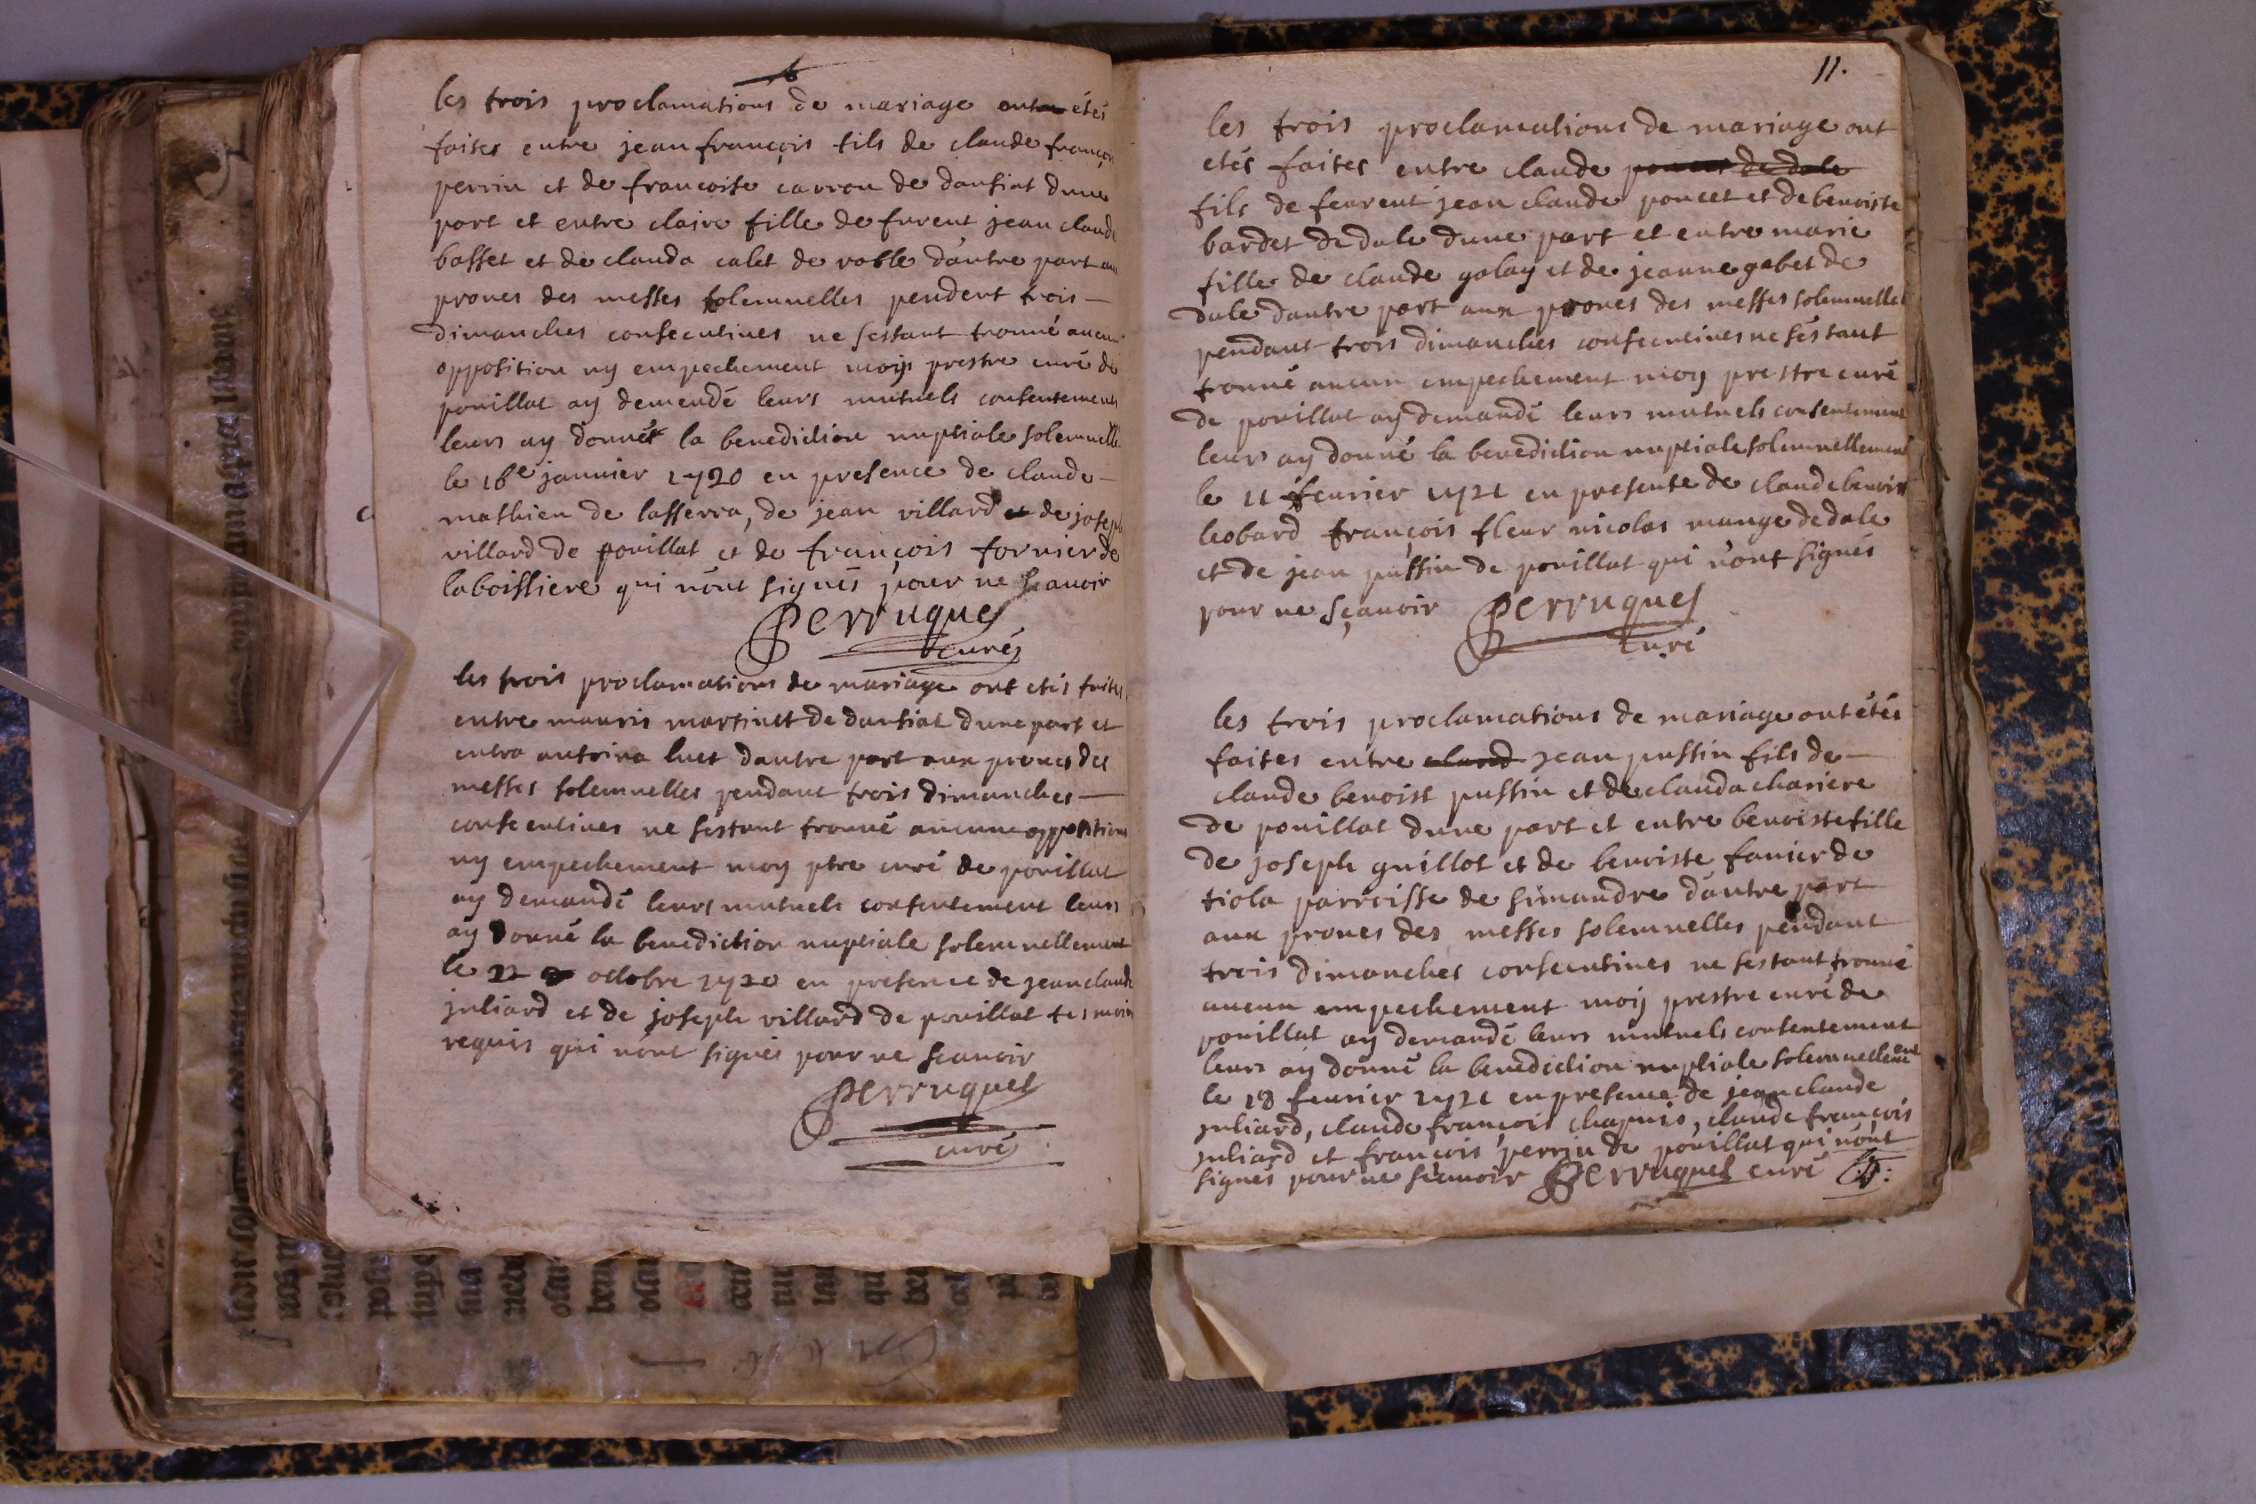 les trois proclamations de mariage ont étés
faites entre jean françois fils de claude françois
perrin et de francoise carron de dansiat dune
part et entre claire fille de furent jean claude
basset et de clauda calet de roble dautre part au
prones des messes solemnelles pendent trois
dimanches consecutives ne sestant trouué aucune
opposition ny empechement moy prestre curé de
pouillat ay demendé leurs mutuels consentements
leurs ay donné la benediction nuptiale solemnelle
le 16e januier 1720 en presence de claude
mathieu de lasserra, de jean villard et de joseph
villard de pouillat et de françois fornier de
laboissiere qui n'ont signés pour ne scauoir
Perruquet
curé
les trois proclamations de mariage ont etés faites
entre mauris martinet de dansiat dune part et
entra antoina luet dautre part aux prones des
messes solemnelles pendant trois dimanches
consecutives ne sestant trouué aucune opposition
ny empechement moy ptre curé de pouillat
ay demandé leurs mutuels consentement leurs
ay donné la benediction nuptiale solemnellement
le 22 octobre 1720 en presence de jean claude
juliard et de joseph villard de pouillat tesmoins
requis qui n'ont signés pour ne scauoir
Perruquet
curé
11.
les trois proclamations de mariage ont
etés faites entre claude poncet de dale
fils de feurent jean claude poncet et de benoiste
bardet de dale dune part et entre marie
fille de claude galay et de jeanne gabet de
dale dautre part aux prones des messes solemnelles
pendant trois dimanches consecutives ne s'estant
trouué aucun empechement moy prestre curé
de pouillat ay demandé leurs mutuels consentement
leurs ay donné la benediction nuptiale solemnellement
le 11 feurier 1721 en presente de claude benoist
leobard françois fleur nicolas mange de dale
et de jean pussin de pouillat qui n'ont signés
pour ne sçauoir Perruquet
curé
les trois proclamations de mariage ont étés
faites entre claud jean pussin fils de
claude benoist pussin et de clauda chariere
de pouillat dune part et entre benoiste fille
de joseph guillot et de benoiste fauier de
tiola parroisse de simandre dautre part
aux prones des messes solemnelles pendant
trois dimanches consecutives ne sestant trouué
aucun empechement moy prestre curé de
pouillat ay demandé leurs mutuels consentement
leurs ay donné la benediction nuptiale solemnellement
le 18 feurier 1721 en presence de jean claude
juliard, claude françois chapuis, claude françois
juliard et françois perrin de pouillat qui n'ont
signés pour ne scauoir Perruquet curé